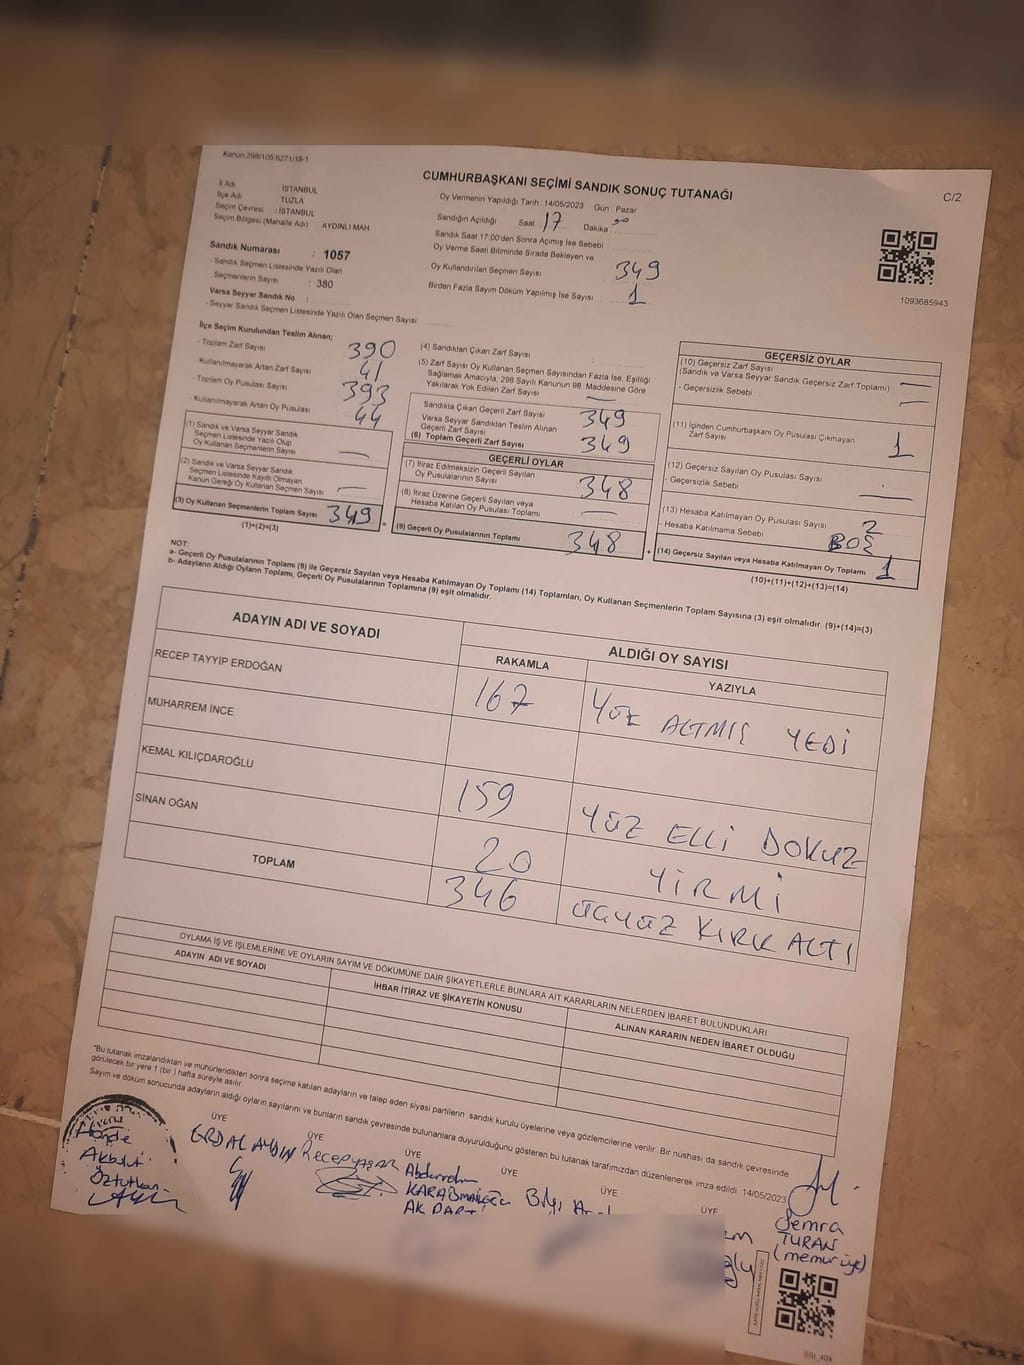 Kanun.298/105.6271/18-1
CUMHURBAŞKANI SEÇİMİ SANDIK SONUÇ TUTANAĞI
C/2
İl Adı : İSTANBUL
İlçe Adı : TUZLA
Seçim Çevresi : İSTANBUL
Seçim Bölgesi (Mahalle Adı) AYDINLI MAH
Oy Vermenin Yapıldığı Tarih : 14/05/2023 Gün : Pazar
Sandığın Açıldığı Saat 17 Dakika
Sandık Saat 17:00'den Sonra Açılmış İse Sebebi :
Oy Verme Saati Bitiminde Sırada Bekleyen ve
Oy Kullandırılan Seçmen Sayısı 349
Birden Fazla Sayım Döküm Yapılmış İse Sayısı : 1
1093685943
Sandık Numarası : 1057
- Sandık Seçmen Listesinde Yazılı Olan
Seçmenlerin Sayısı : 380
Varsa Seyyar Sandık No :
- Seyyar Sandık Seçmen Listesinde Yazılı Olan Seçmen Sayısı
İlçe Seçim Kurulundan Teslim Alınan;
- Toplam Zarf Sayısı 390
- Kullanılmayarak Artan Zarf Sayısı 41
- Toplam Oy Pusulası Sayısı 393
- Kullanılmayarak Artan Oy Pusulası 44
(1) Sandık ve Varsa Seyyar Sandık
Seçmen Listesinde Yazılı Olup
Oy Kullanan Seçmenlerin Sayısı —
(2) Sandık ve Varsa Seyyar Sandık
Seçmen Listesinde Kayıtlı Olmayan
Kanun Gereği Oy Kullanan Seçmen Sayısı —
(3) Oy Kullanan Seçmenlerin Toplam Sayısı 349 =
(1)+(2)=(3)
(4) Sandıktan Çıkan Zarf Sayısı
(5) Zarf Sayısı Oy Kullanan Seçmen Sayısından Fazla İse, Eşitliği
Sağlamak Amacıyla, 298 Sayılı Kanunun 98. Maddesine Göre
Yakılarak Yok Edilen Zarf Sayısı —
Sandıkta Çıkan Geçerli Zarf Sayısı 349
Varsa Seyyar Sandıktan Teslim Alınan
Geçerli Zarf Sayısı
(6) Toplam Geçerli Zarf Sayısı 349
GEÇERLİ OYLAR
(7) İtiraz Edilmeksizin Geçerli Sayılan
Oy Pusulalarının Sayısı 348
(8) İtiraz Üzerine Geçerli Sayılan veya
Hesaba Katılan Oy Pusulası Toplamı —
(9) Geçerli Oy Pusulalarının Toplamı 348 +
GEÇERSİZ OYLAR
(10) Geçersiz Zarf Sayısı
(Sandık ve Varsa Seyyar Sandık Geçersiz Zarf Toplamı) —
- Geçersizlik Sebebi —
(11) İçinden Cumhurbaşkanı Oy Pusulası Çıkmayan
Zarf Sayısı 1
(12) Geçersiz Sayılan Oy Pusulası Sayısı
- Geçersizlik Sebebi —
(13) Hesaba Katılmayan Oy Pusulası Sayısı 2
- Hesaba Katılmama Sebebi BOŞ
(14) Geçersiz Sayılan veya Hesaba Katılmayan Oy Toplamı 1
(10)+(11)+(12)+(13)=(14)
NOT:
a- Geçerli Oy Pusulalarının Toplamı (9) ile Geçersiz Sayılan veya Hesaba Katılmayan Oy Toplamı (14) Toplamları, Oy Kullanan Seçmenlerin Toplam Sayısına (3) eşit olmalıdır. (9)+(14)=(3)
b- Adayların Aldığı Oyların Toplamı, Geçerli Oy Pusulalarının Toplamına (9) eşit olmalıdır.
ADAYIN ADI VE SOYADI ALDIĞI OY SAYISI
RAKAMLA YAZIYLA
RECEP TAYYİP ERDOĞAN 167 YÜZ ALTMIŞ YEDİ
MUHARREM İNCE
KEMAL KILIÇDAROĞLU 159 YÜZ ELLİ DOKUZ
SİNAN OĞAN 20 YİRMİ
TOPLAM 346 ÜÇYÜZ KIRK ALTI
OYLAMA İŞ VE İŞLEMLERİNE VE OYLARIN SAYIM VE DÖKÜMÜNE DAİR ŞİKAYETLERLE BUNLARA AİT KARARLARIN NELERDEN İBARET BULUNDUKLARI
ADAYIN ADI VE SOYADI İHBAR İTİRAZ VE ŞİKAYETİN KONUSU ALINAN KARARIN NEDEN İBARET OLDUĞU
*Bu tutanak imzalandıktan ve mühürlendikten sonra seçime katılan adayların ve talep eden siyasi partilerin sandık kurulu üyelerine veya gözlemcilerine verilir. Bir nüshası da sandık çevresinde
görülecek bir yere 1 (bir) hafta süreyle asılır.
Sayım ve döküm sonucunda adayların aldığı oyların sayılarını ve bunların sandık çevresinde bulunanlara duyurulduğunu gösteren bu tutanak tarafımızdan düzenlenerek imza edildi. 14/05/2023
ÜYE ÜYE ÜYE ÜYE ÜYE ÜYE
Hande
Akbulut
Öztutkan
ERDAL AYDIN
Recep YAŞAR
KARAİSMAİLOĞLU
AK PARTİ
Semra
TURAN
(memur üye)